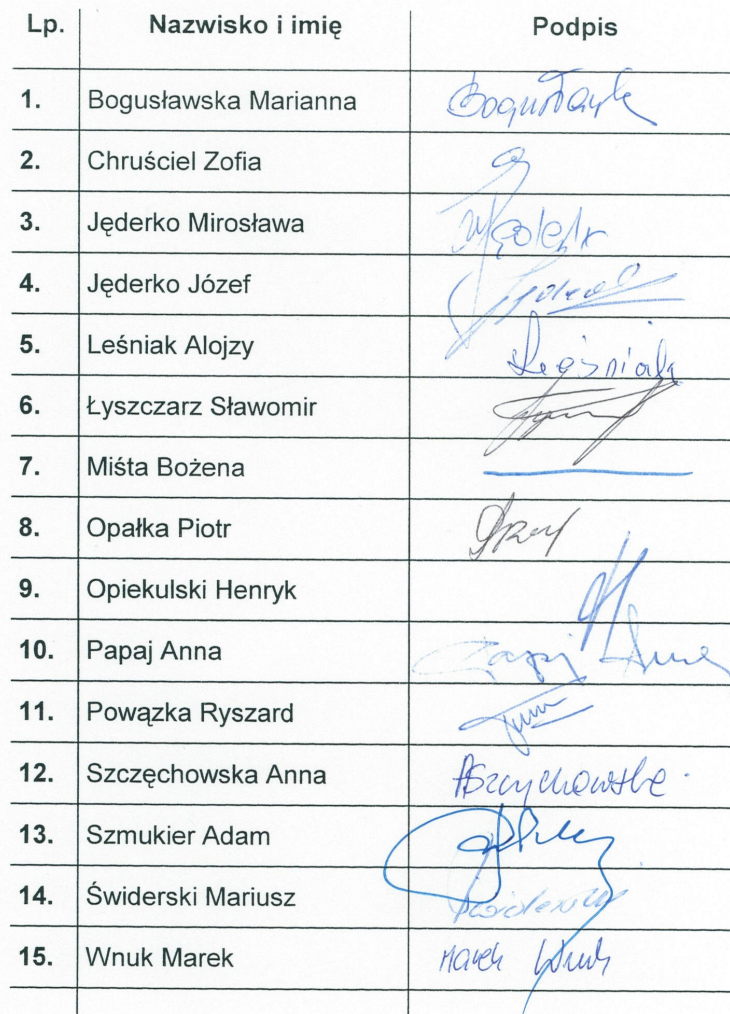 Lp. Nazwisko i imię Podpis
1. Bogusławska Marianna
2. Chruściel Zofia
3. Jęderko Mirosława
4. Jęderko Józef
5. Leśniak Alojzy Leśniak
6. Łyszczarz Sławomir
7. Miśta Bożena
8. Opałka Piotr
9. Opiekulski Henryk
10. Papaj Anna
11. Powązka Ryszard
12. Szczęchowska Anna
13. Szmukier Adam
14. Świderski Mariusz
15. Wnuk Marek Marek Wnuk